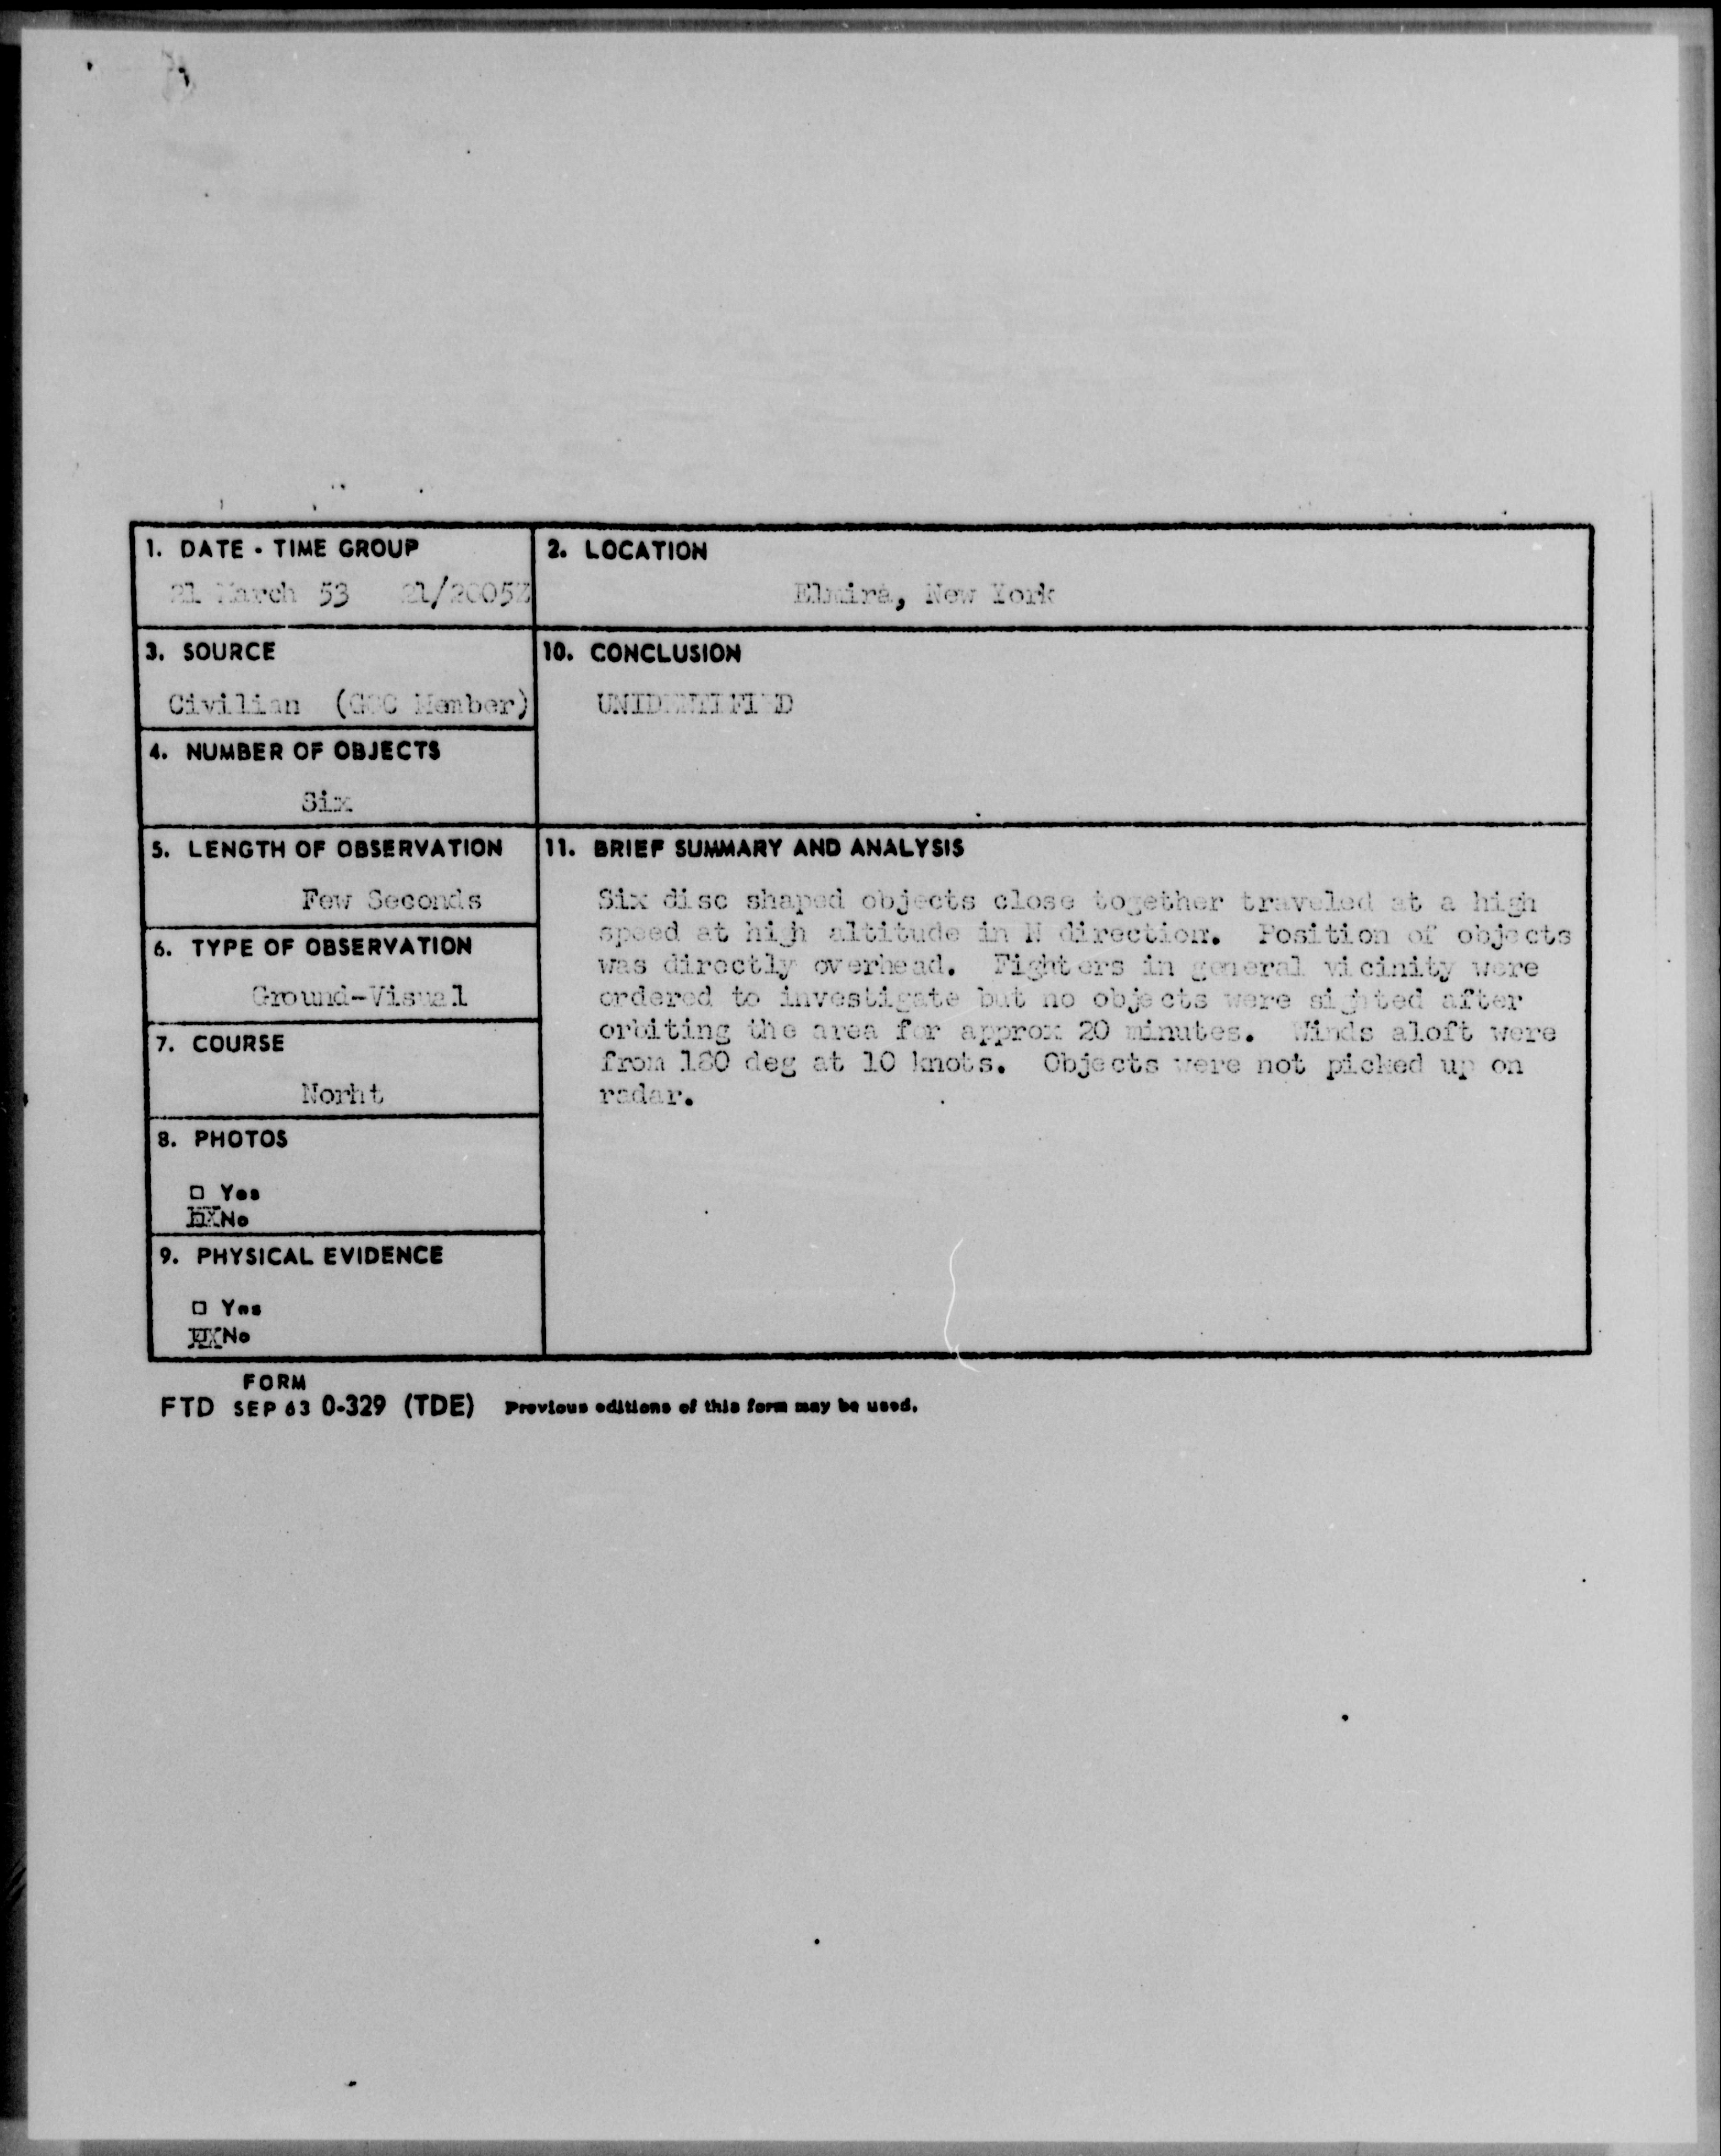 1. DATE - TIME GROUP
21 March 53 21/2005Z
2. LOCATION
Elmira, New York
3. SOURCE
Civilian (GOC Member)
10. CONCLUSION
UNIDENTIFIED
4. NUMBER OF OBJECTS
Six
5. LENGTH OF OBSERVATION
Few Seconds
11. BRIEF SUMMARY AND ANALYSIS
Six disc shaped objects close together traveled at a high
speed at high altitude in N direction. Position of objects
was directly overhead. Fighters in general vicinity were
ordered to investigate but no objects were sighted after
orbiting the area for approx 20 minutes. Winds aloft were
from 180 deg at 10 knots. Objects were not picked up on
radar.
6. TYPE OF OBSERVATION
Ground-Visual
7. COURSE
Norht
8. PHOTOS
□ Yes
☒ No
9. PHYSICAL EVIDENCE
□ Yes
☒ No
FORM
FTD SEP 63 0-329 (TDE) Previous editions of this form may be used.